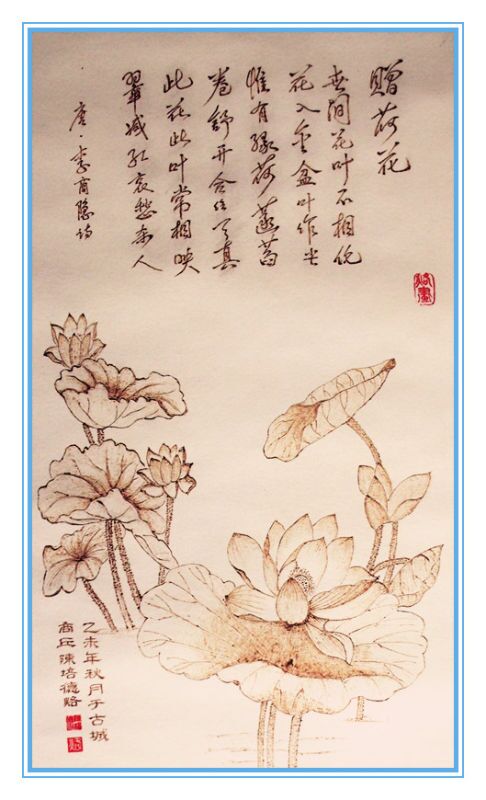 赠荷花
世间花叶不相伦
花入金盆叶作尘
惟有绿荷菡萏
卷舒开合任天真
此花此叶常相映
翠减红衰愁杀人
唐·李商隐诗
烙画
乙未年秋月于古城
商丘陈培德烙